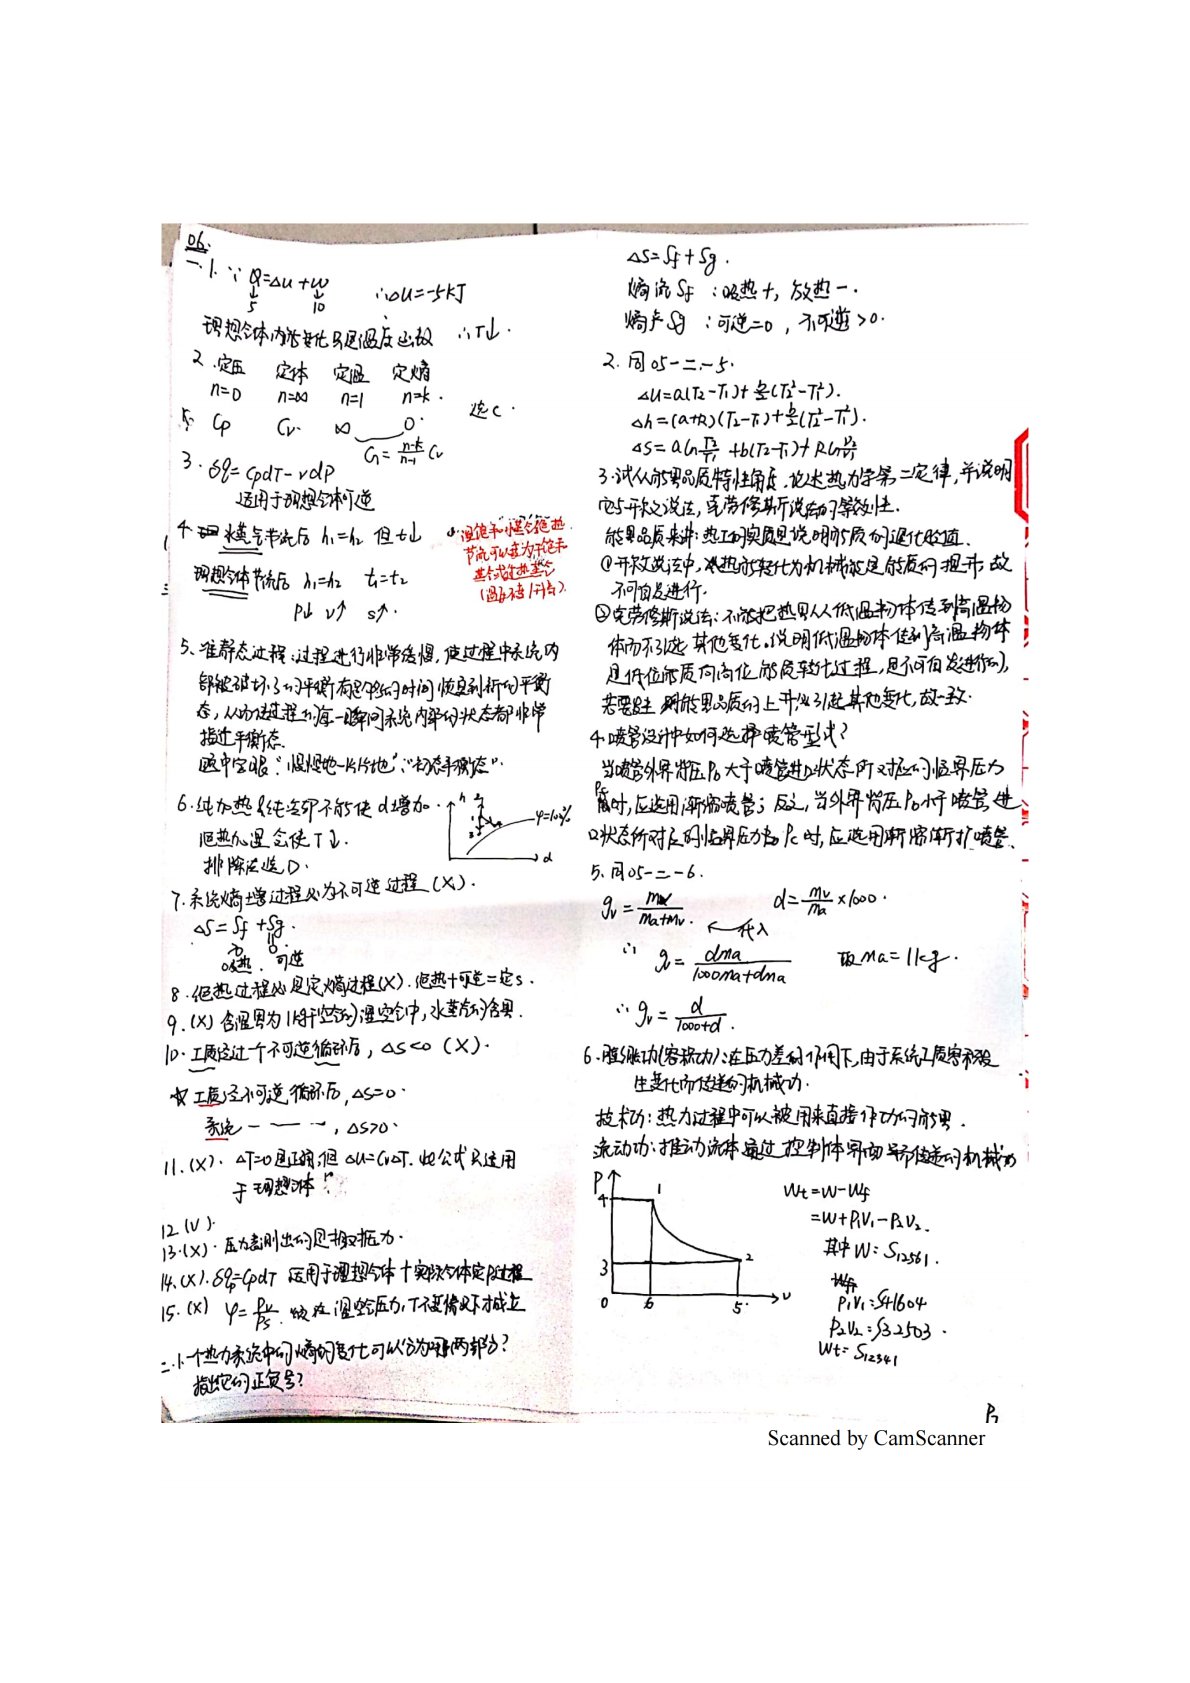 06.
一.1. ∵ Q=ΔU+W
5 10
∴ΔU=-5kJ
理想气体内能变化只是温度函数 ∴T↓.
2. 定压 定体 定温 定熵
n=0 n=∞ n=1 n=k. 选C.
Cp Cv ∞ 0.
Cn=(n-k)/(n-1) Cv
3. δq=CpdT-vdp
适用于理想气体可逆
4. 水蒸气节流后 h₁=h₂ 但t↓
理想气体节流后 h₁=h₂ t₁=t₂
P↓ v↑ s↑.
湿饱和水蒸气绝热
节流可以变为干饱和
蒸气或过热蒸气
5. 准静态过程:过程进行非常缓慢,使过程中系统内
部被破坏了的平衡有足够的时间恢复到新的平衡
态,从而使过程的每一瞬间系统内部的状态都非常
接近平衡态.
题中字眼:"慢慢地一片片地","初态平衡态".
6. 纯加热&纯冷却不能使d增加.
绝热加湿会使T↓.
排除法选D.
h φ=100% d
7. 系统熵增过程必为不可逆过程(X).
ΔS=Sf+Sg.
吸热. 可逆
8. 绝热过程必是定熵过程(X).绝热+可逆=定s.
9. (X) 含湿量为1kg干空气的湿空气中,水蒸气的含量.
10. 工质经过一个不可逆循环后, ΔS<0 (X).
☆ 工质经不可逆循环后,ΔS=0.
系统 — — — , ΔS>0.
11. (X). ΔT=0是正确,但ΔU=CvΔT.此公式只适用
于理想气体.
12. (V).
13. (X). 压力表测出的是相对压力.
14. (X). δqp=CpdT 适用于理想气体+实际气体定P过程
15. (X) φ=Pv/Ps. 须在湿空气压力,T不变情况下才成立
二.1.一个热力系统中的熵的变化可以分为哪两部分?
指出它的正负号?
ΔS=Sf+Sg.
熵流Sf :吸热+,放热-.
熵产Sg :可逆=0,不可逆>0.
2. 同05-二-5.
ΔU=a(T₂-T₁)+b/2(T₂²-T₁²).
Δh=(a+R)(T₂-T₁)+b/2(T₂²-T₁²).
ΔS=aln T₂/T₁+b(T₂-T₁)+Rln v₂/v₁
3. 试从能量品质特性角度,论述热力学第二定律,并说明
它与开尔文说法,克劳修斯说法的等效性.
能量品质来讲:热工的实质是说明能质的退化贬值.
①开尔文说法中,热能转化为机械能是能质的提升,故
不可自发进行.
②克劳修斯说法:不能把热量从低温物体传到高温物
体而不引起其他变化.说明低温物体传到高温物体
是低位能质向高位能质转化过程,是不可自发进行的,
若要发生,则能量品质的上升必引起其他变化,故一致.
4. 喷管设计中如何选择喷管型式?
当喷管外界背压Pb大于喷管进口状态所对应的临界压力
Pc时,应选用渐缩喷管;反之,当外界背压Pb小于喷管进
口状态所对应的临界压力Pc时,应选用渐缩渐扩喷管.
5. 同05-二-6.
gv=mv/(ma+mv). d=mv/ma×1000.
代入
∴ gv=dma/(1000ma+dma) 取ma=1kg.
∴gv=d/(1000+d).
6. 膨胀功(容积功):在压力差的作用下,由于系统工质容积发
生变化而传递的机械功.
技术功:热力过程中可以被用来直接作功的能量.
流动功:推动流体通过控制体界面而传递的机械功
P 4 1 3 2 0 6 5 v
Wt=W-Wf
=W+P₁V₁-P₂V₂.
其中W=S₁₂₅₆₁.
P₁V₁=S₄₁₆₀₄
P₂V₂=S₃₂₅₀₃.
Wt=S₁₂₃₄₁
Scanned by CamScanner